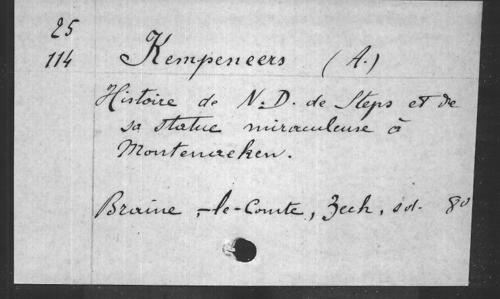 25
114 Kempeneers (A.)
Histoire de N.-D. de Steps et de
sa statue miraculeuse à
Montenaeken.
Braine-le-Comte, Zech, sd. 8o